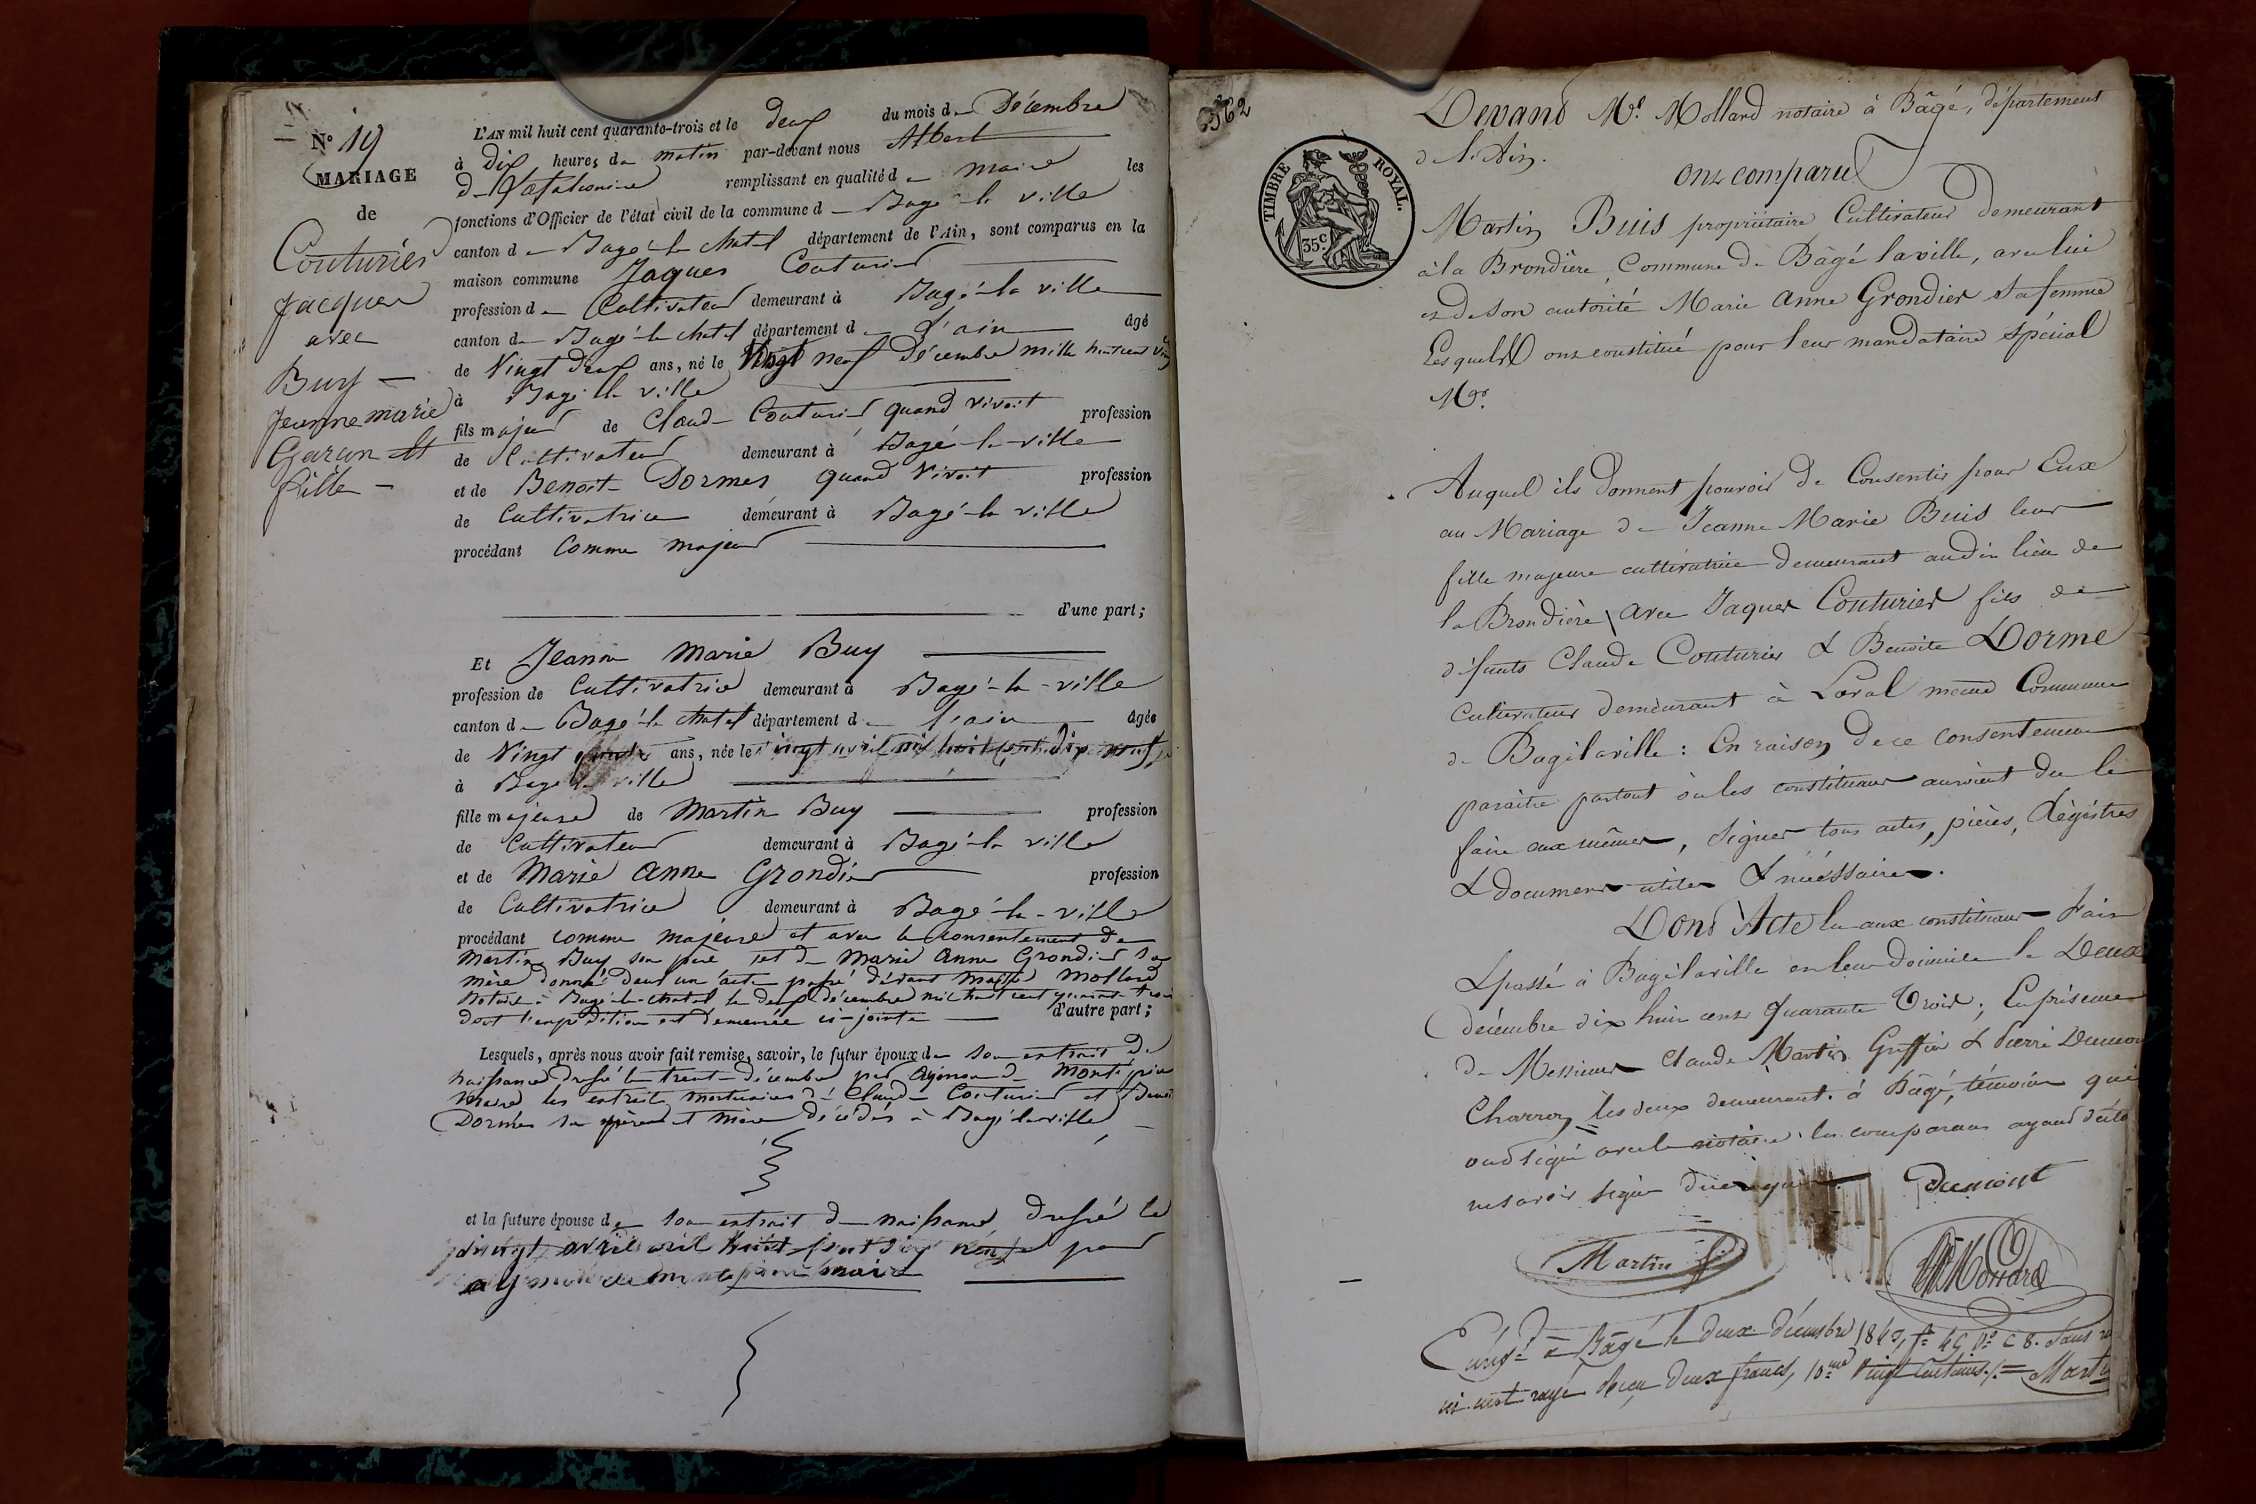 N° 19
MARIAGE
de
Couturier
Jacques
avec
Buy
Jeanne marie
Garcon et
fille
L'AN mil huit cent quarante-trois et le deux du mois de Décembre
à Dix heures du matin par-devant nous Albert
remplissant en qualité de maire les
fonctions d'Officier de l'état civil de la commune de Bagé la ville
canton de Bagé-le chatel département de l'Ain, sont comparus en la
maison commune Jaques Couturier
profession de Cultivateur demeurant à Bagé-la ville
canton de Bagé-le chatel département de l'ain âgé
de Vingt deux ans, né le Vingt neuf Décembre mille huit cent
à Bagé la ville
fils majeur de Claude Couturier quand vivait profession
de Cultivateur demeurant à Bagé-la-ville
et de Benoite Dormes quand Vivait profession
de Cultivatrice demeurant à Bagé-la ville
procédant Comme majeur
d'une part;
Et Jeanne Marie Buy
profession de Cultivatrice demeurant à Bagé-la-ville
canton de Bagé-le chatel département de l'ain âgée
de Vingt ans, née le vingt avril mil huit cent dix neuf
à Bagé la ville
fille majeure de Martin Buy profession
de Cultivateur demeurant à Bagé-la ville
et de Marie Anne Grondier profession
de Cultivatrice demeurant à Bagé-la-ville
procédant comme majeure et avec le consentement de
Martin Buy son père et de Marie Anne Grondier sa
mère donné dans un acte passé dévant Maitre Mollard
Notaire à Bagé-le-chatel le deux décembre mil huit cent quarante trois
dont l'expédition est demeurée ci-jointe d'autre part;
Lesquels, après nous avoir fait remise, savoir, le futur époux de son extrait de
naissance dressé le trente décembre par
maire les extraits mortuaires de Claude Couturier et Benoite
Dormes ses père et mère décédés à Bagé la ville
et la future épouse de son extrait de naissance dressé le
vingt avril mil huit cent dix neuf par
maire
362
TIMBRE ROYAL.
35 c
Devant Me. Mollard notaire à Bâgé, département
de l'Ain.
ont comparu
Martin Buis propriétaire Cultivateur demeurant
à la Brondière, Commune de Bâgé laville, avec lui
et de son autorité Marie Anne Grondier sa femme
Lesquels ont constitué pour leur mandataire spécial
Mr.
Auquel ils donnent pouvoir de Consentir pour Eux
au Mariage de Jeanne Marie Buis leur
fille majeure cultivatrice demeurant audit lieu de
la Brondière avec Jaques Couturier fils de
défunts Claude Couturier & Benoite Dorme
Cultivateur demeurant à Loval même Commune
de Bagélaville: En raison de ce consentement
paraitre partout où les constituans auroient du le
faire eux mêmes, signer tous actes, pièces, Régistres
& documens utiles & nécéssaires.
Dont Acte lu aux constituans Fait
& passé à Bagélaville en leur domicile le Deux
décembre dix huit cent Quarante Trois; En présence
de Messieurs Claude Martin Greffier & Pierre Dumont
Charron les deux demeurant à Bâgé, témoins qui
ont signé avec le notaire les comparans ayant déclaré
ne savoir signer
Dumont
Martin
Mollard
Enregé. à Bâgé le deux décembre 1843, fo 46 Vo C 8. sans
reçu deux francs, 10me vingt centimes. Martin